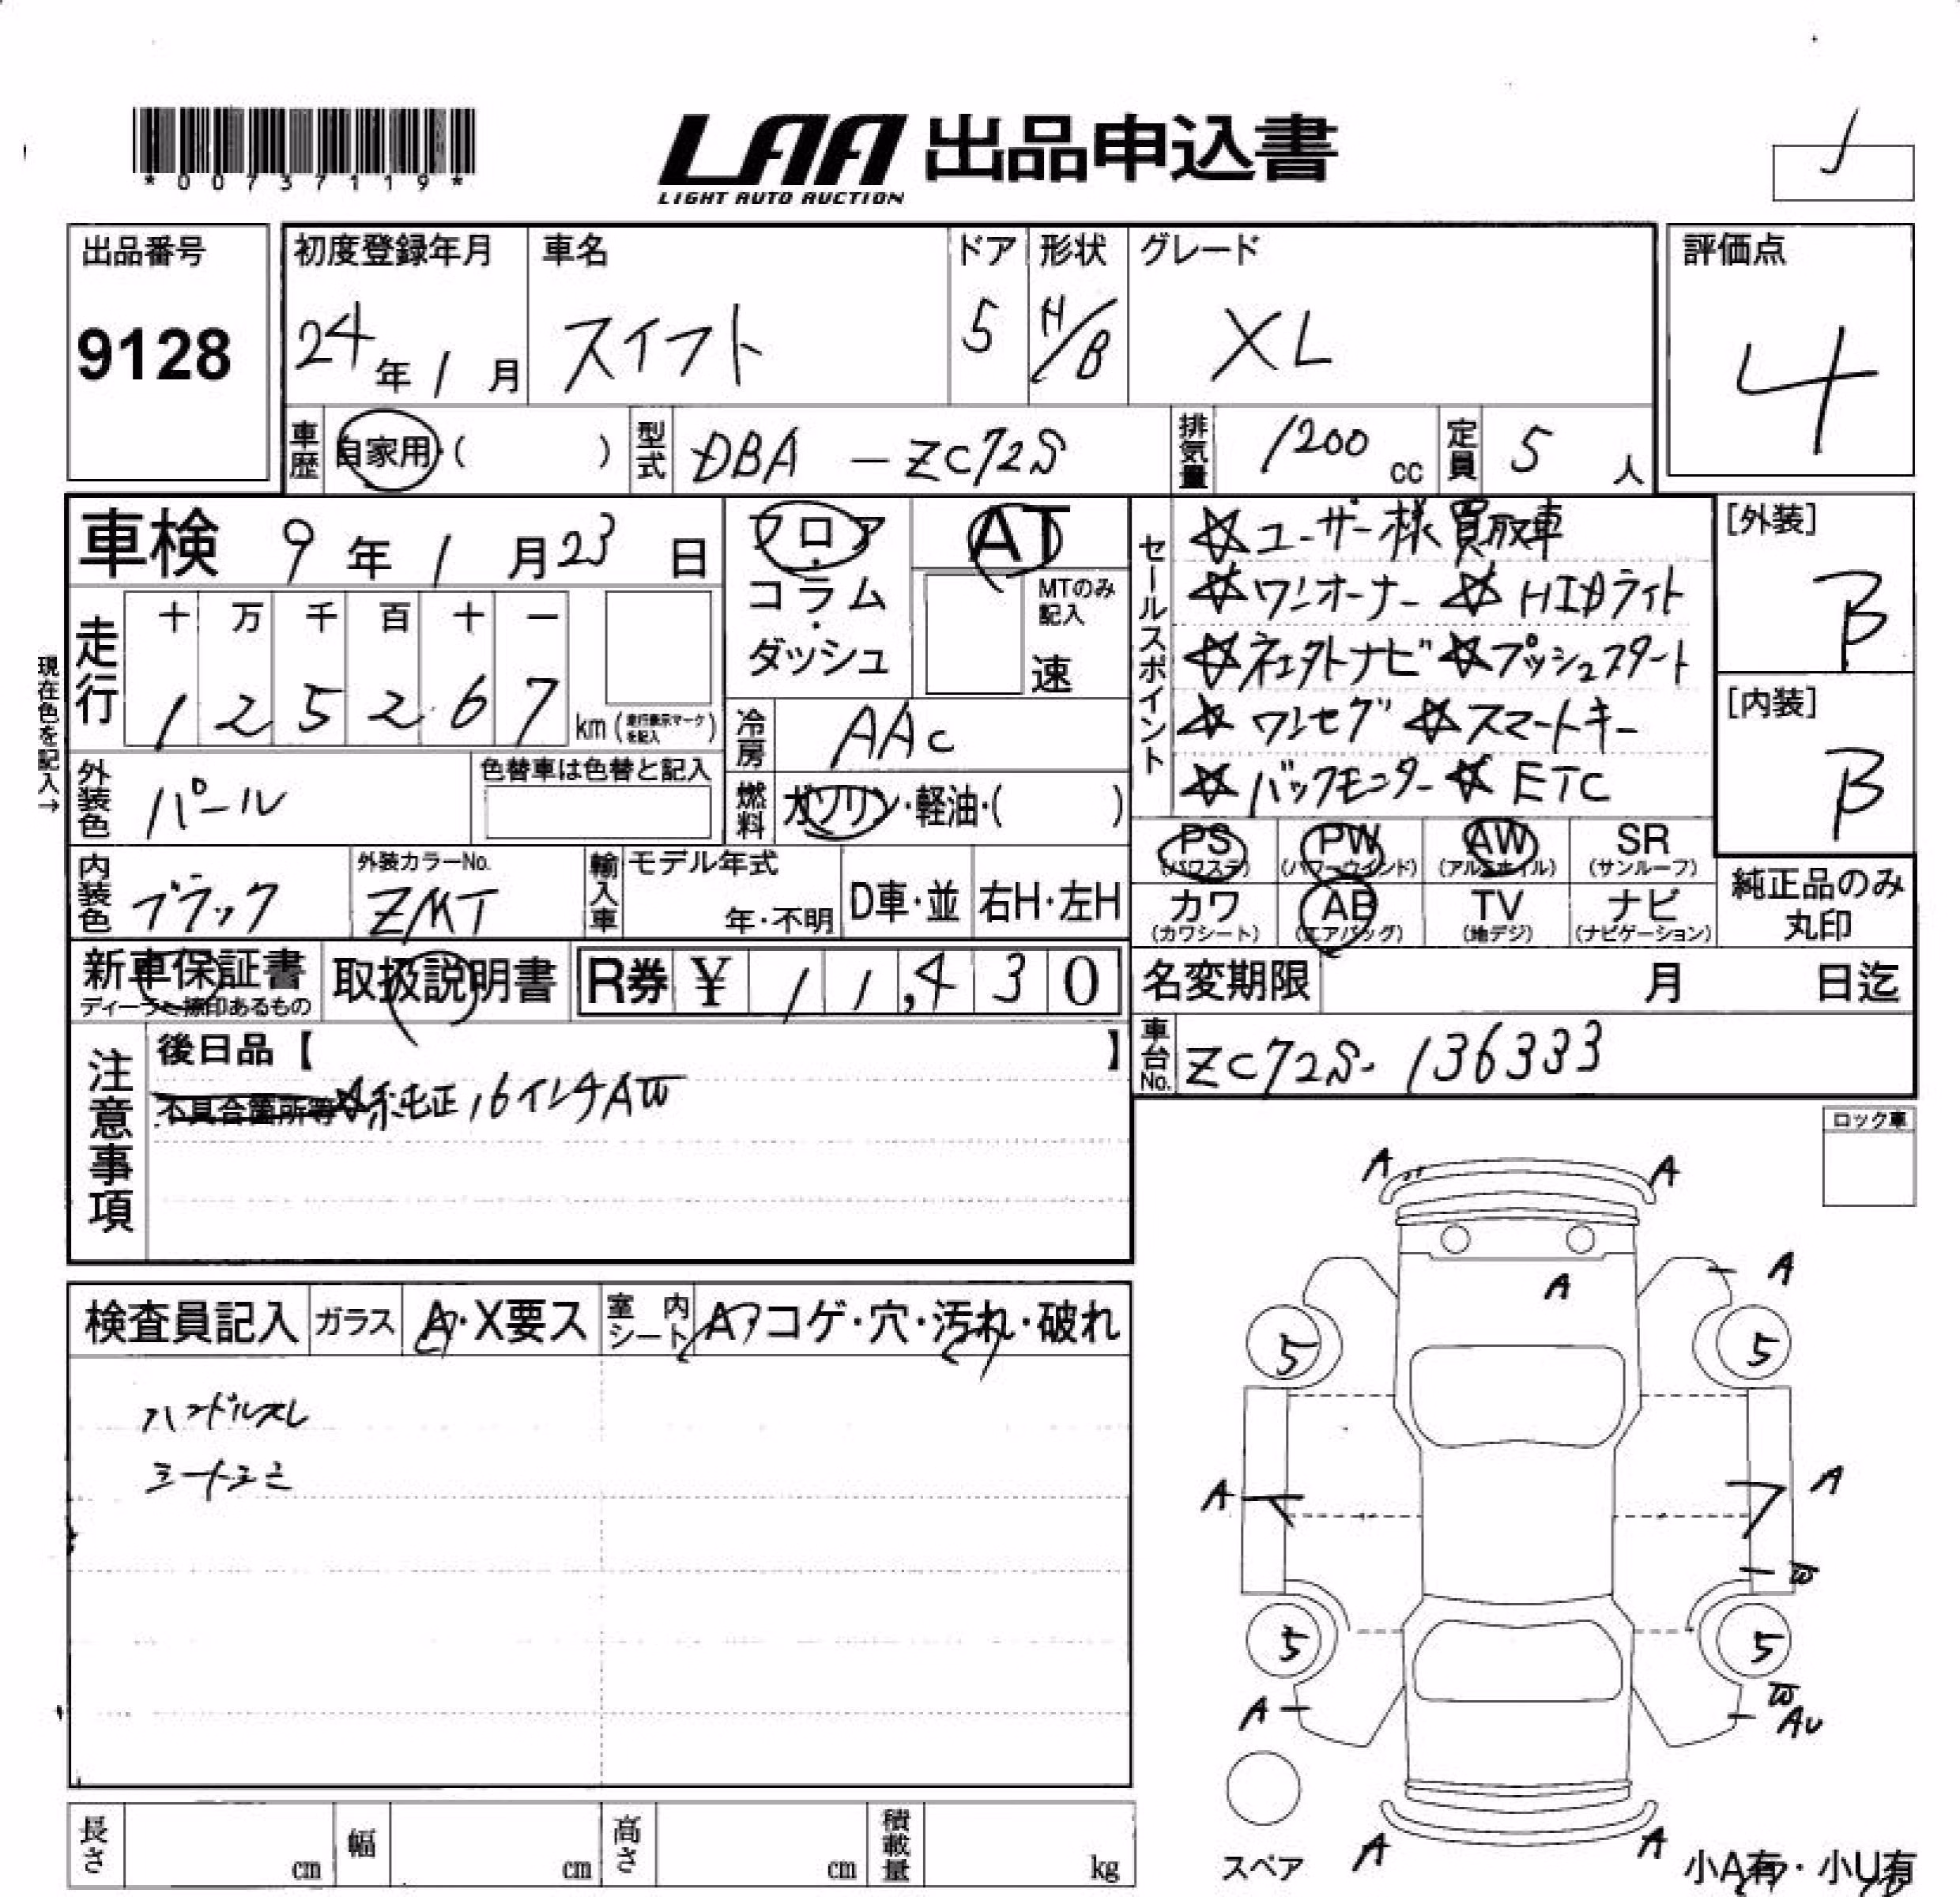 *00737119*
LAA 出品申込書
LIGHT AUTO AUCTION
出品番号
9128
初度登録年月
24年1月
車名
スイフト
ドア
5
形状
H/B
グレード
XL
評価点
4
車歴
自家用・( )
型式
DBA-ZC72S
排気量
1200cc
定員
5人
車検 9年1月23日
フロア・コラム・ダッシュ
AT
MTのみ記入
速
セールスポイント
☆ユーザー様買取車
☆ワンオーナー ☆HIDライト
☆ナビ ☆プッシュスタート
☆ワンセグ ☆スマートキー
☆バックモニター ☆ETC
[外装]
B
[内装]
B
現在色を記入→
走行
十 万 千 百 十 一
1 2 5 2 6 7 km (走行表示マークを記入)
冷房
AAC
外装色
パール
色替車は色替と記入
燃料
ガソリン・軽油・( )
PS PW AW SR
(パワステ) (パワーウインド) (アルミホイル) (サンルーフ)
カワ AB TV ナビ
(カワシート) (エアバッグ) (地デジ) (ナビゲーション)
純正品のみ丸印
内装色
ブラック
外装カラーNo.
ZMT
輸入車
モデル年式
年・不明
D車・並
右H・左H
新車保証書
取扱説明書
R券 ¥ 11,430
名変期限 月 日迄
車台No.
ZC72S-136333
注意事項
後日品【 】
不具合箇所等 ☆純正16インチAW
ロック車
検査員記入
ガラス
A・X要ス
室内シート
A・コゲ・穴・汚れ・破れ
ハンドルスレ
シートシミ
A A
A A
5 5
A A
W
5 5
A W
AU
スペア
A A
小A有・小U有
長さ cm
幅 cm
高さ cm
積載量 kg